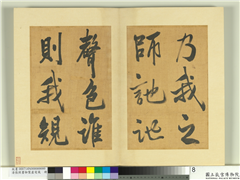 乃我之
師訑訑
聲色誰
則我規
8
國立故宮博物院